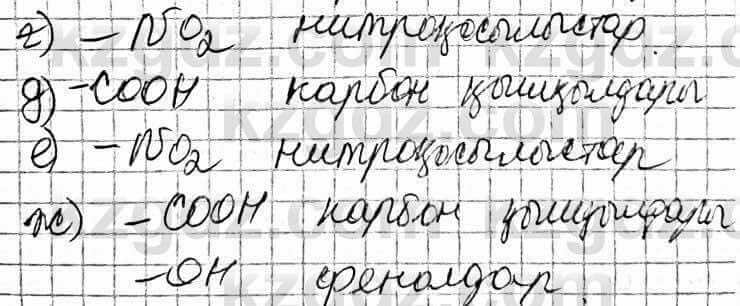 г) – NO₂ нитроқосылыстар.
д) -COOH карбон қышқылдары
е) – NO₂ нитроқосылыстар
ж) – COOH карбон қышқылдары
– OH фенолдар.